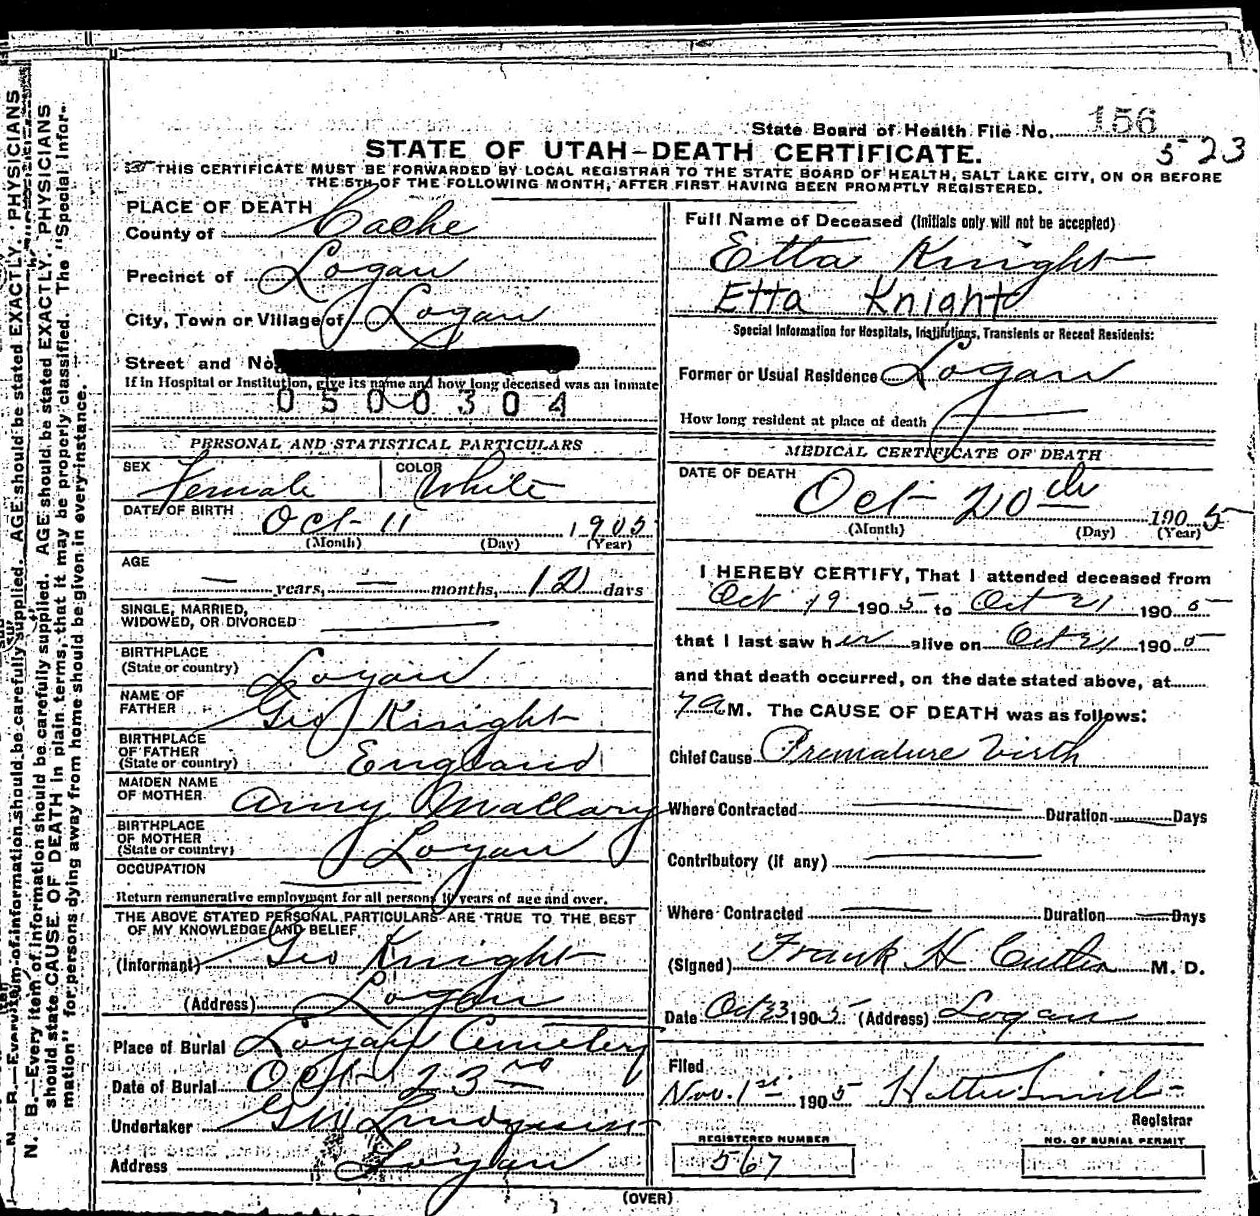 State Board of Health File No. 156
523
STATE OF UTAH—DEATH CERTIFICATE.
THIS CERTIFICATE MUST BE FORWARDED BY LOCAL REGISTRAR TO THE STATE BOARD OF HEALTH, SALT LAKE CITY, ON OR BEFORE
THE 5TH OF THE FOLLOWING MONTH, AFTER FIRST HAVING BEEN PROMPTLY REGISTERED.
PLACE OF DEATH
County of Cache
Precinct of Logan
City, Town or Village of Logan
Street and No.
If in Hospital or Institution, give its name and how long deceased was an inmate
0500304
PERSONAL AND STATISTICAL PARTICULARS
SEX Female COLOR White
DATE OF BIRTH Oct 11 1905
(Month) (Day) (Year)
AGE
— years, — months, 12 days
SINGLE, MARRIED,
WIDOWED, OR DIVORCED
BIRTHPLACE
(State or country) Logan
NAME OF
FATHER Geo Knight
BIRTHPLACE
OF FATHER
(State or country) England
MAIDEN NAME
OF MOTHER Amy Mallary
BIRTHPLACE
OF MOTHER
(State or country) Logan
OCCUPATION
Return remunerative employment for all persons 10 years of age and over.
THE ABOVE STATED PERSONAL PARTICULARS ARE TRUE TO THE BEST
OF MY KNOWLEDGE AND BELIEF
(Informant) Geo Knight
(Address) Logan
Place of Burial Logan Cemetery
Date of Burial Oct 23rd
Undertaker
Address Logan
Full Name of Deceased (Initials only will not be accepted)
Etta Knight
Etta Knight
Special Information for Hospitals, Institutions, Transients or Recent Residents:
Former or Usual Residence Logan
How long resident at place of death
MEDICAL CERTIFICATE OF DEATH
DATE OF DEATH
Oct 20th 1905
(Month) (Day) (Year)
I HEREBY CERTIFY, That I attended deceased from
Oct 19 1905 to Oct 21 1905
that I last saw her alive on Oct 21 1905
and that death occurred, on the date stated above, at
7 a M. The CAUSE OF DEATH was as follows:
Chief Cause Premature Virth
Where Contracted Duration Days
Contributory (if any)
Where Contracted Duration Days
(Signed) Frank H Cutler M. D.
Date Oct 23 1905 (Address) Logan
Filed
Nov. 1st 1905
Registrar
REGISTERED NUMBER
567
NO. OF BURIAL PERMIT
(OVER)
N. B.—Every item of information should be carefully supplied. AGE should be stated EXACTLY. PHYSICIANS
should state CAUSE OF DEATH in plain terms, that it may be properly classified. The "Special Infor-
mation" for persons dying away from home should be given in every instance.